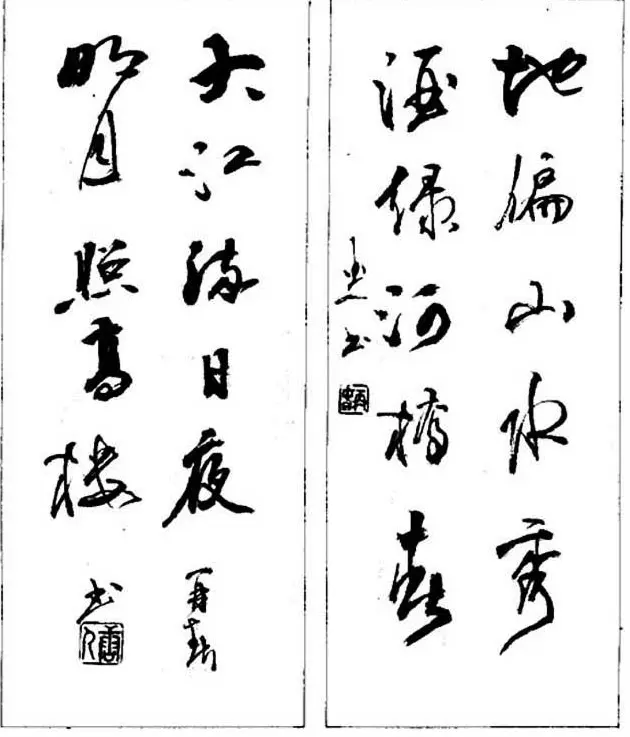 地偏山水秀
酒绿河桥春
书
大江流日夜
明月照高楼
书